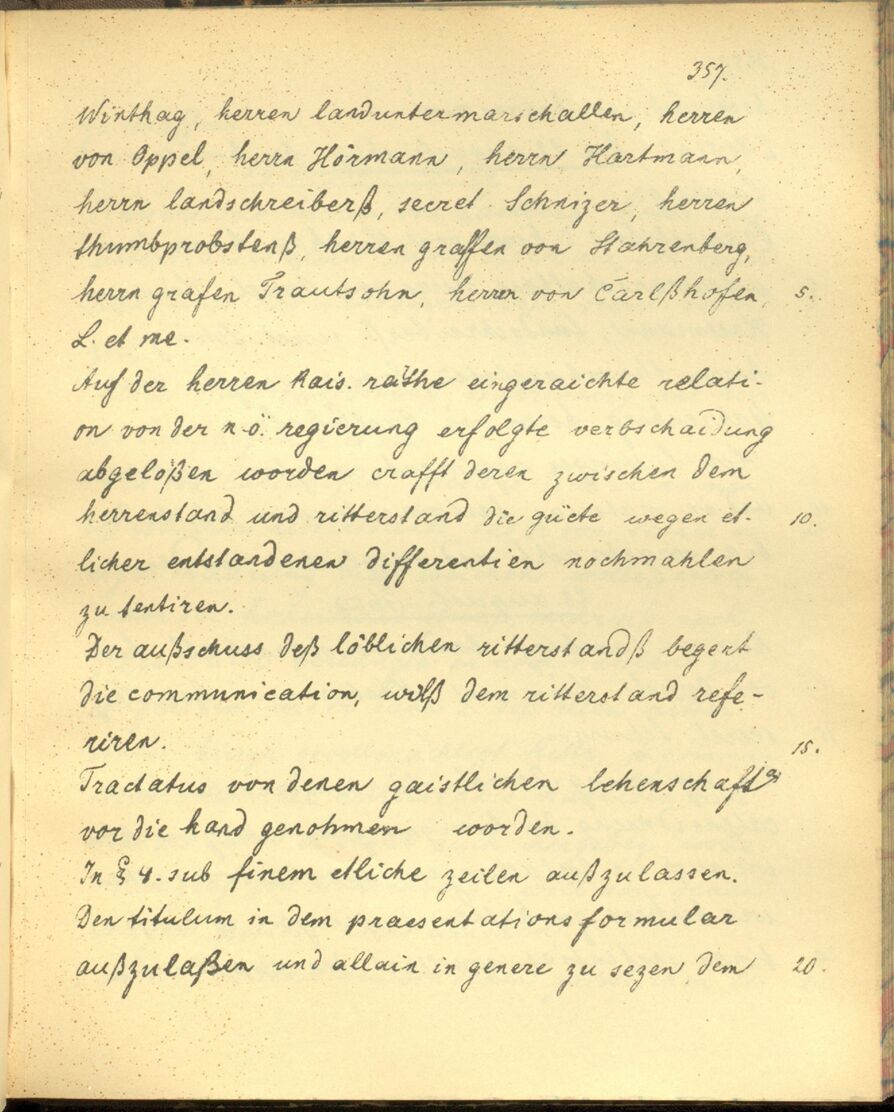 357.
Winthag, herren landuntermarschallen, herren
von Oppel, herrn Hörmann, herrn Hartmann,
herrn landschreiberß, secret. Schnizer, herren
thumbprobstenß, herren graffen von Stahrenberg,
herrn grafen Trautsohn, herrn von Carlßhofen, 5.
L. et me.
Auf der herren Kais. räthe eingeraichte relati-
on von der n. ö. regierung erfolgte verbschaidung
abgelößen worden crafft deren zwischen dem
herrenstand und ritterstand die güete wegen et- 10.
licher entstandenen differentien nochmahlen
zu tentiren.
Der außschuss deß löblichen ritterstandß begert
die communication, wilß dem ritterstand refe-
riren. 15.
Tractatus von denen gaistlichen lehenschaften
vor die hand genohmen worden.
In § 4. sub finem etliche zeilen außzulassen.
Den titulum in dem praesentationsformular
außzulaßen und allain in genere zu sezen dem 20.